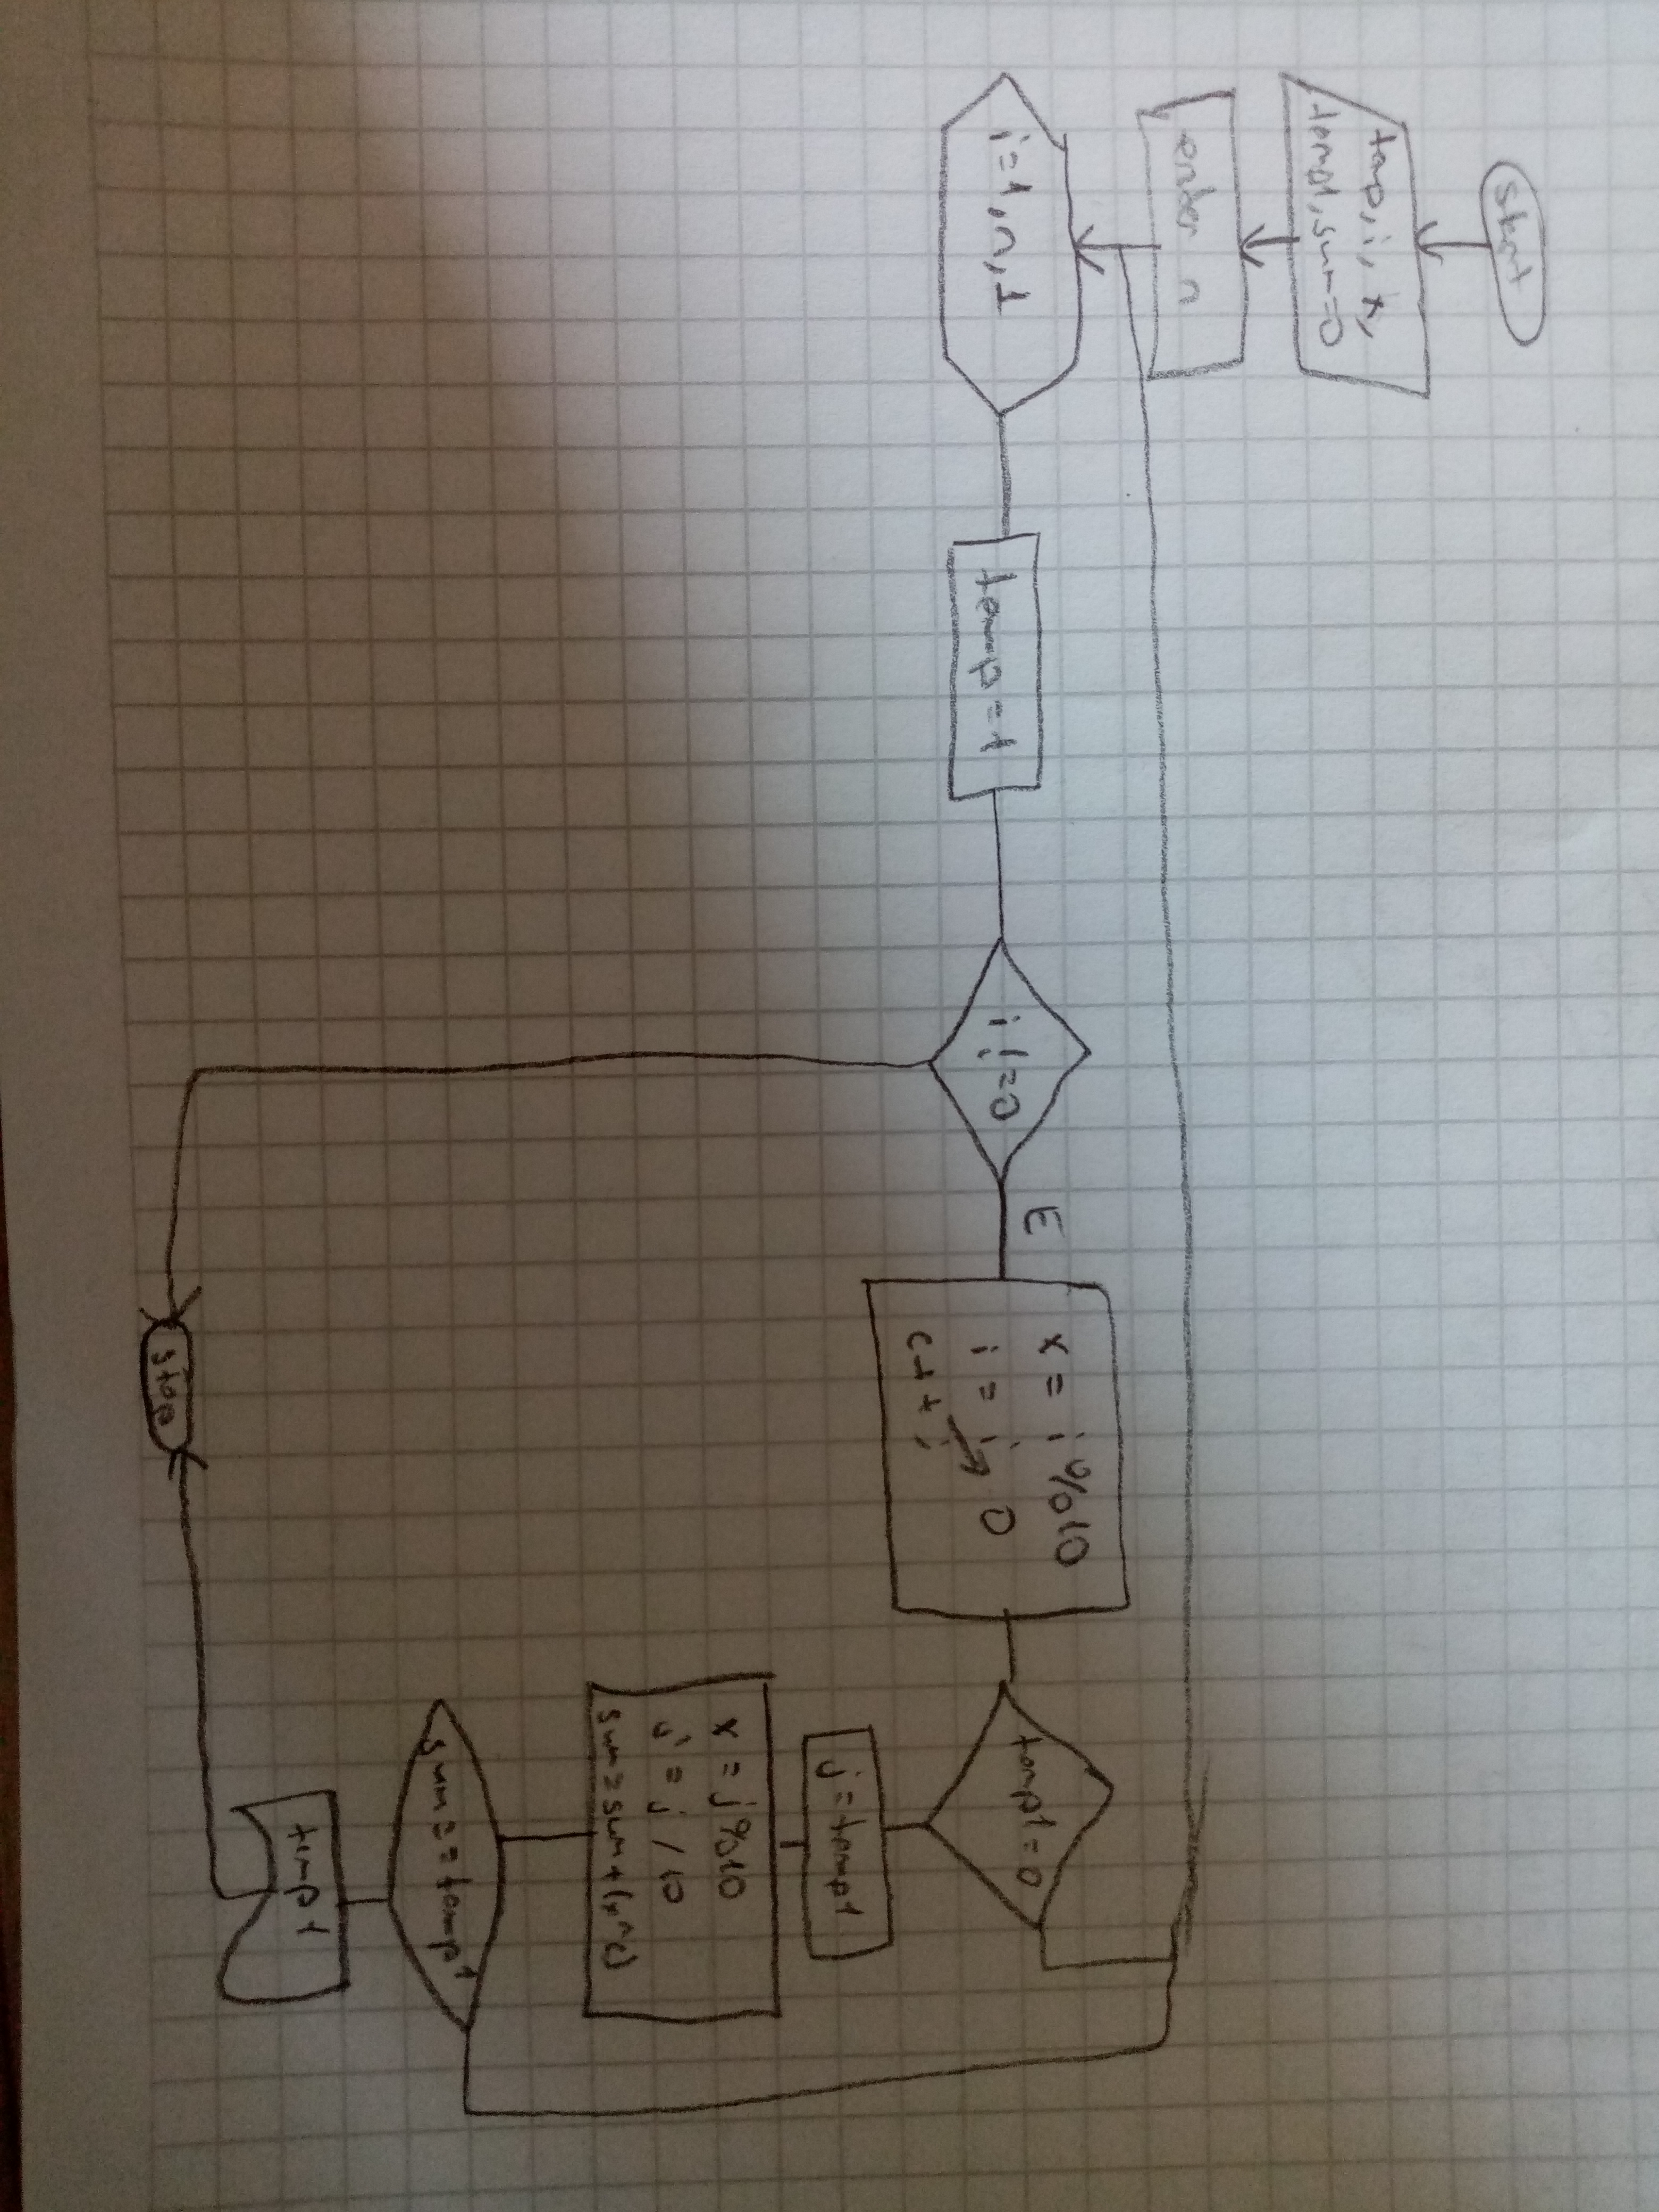 start
temp, i, x,
temp1, sum=0
enter n
i=1, n, 1
temp=1
i!=0
E
x = i%10
i = i 0
c++;
temp1=0
j=temp1
x = j%10
j = j/10
sum=sum+(x^c)
sum==temp1
temp1
stop